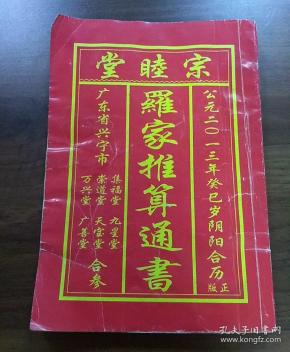 宗睦堂
公元二〇一三年癸巳岁阴阳合历 正版
羅家推算通書
广东省兴宁市
集福堂 九星堂
崇道堂 天宝堂
万兴堂 广善堂
合参
孔夫子旧书网